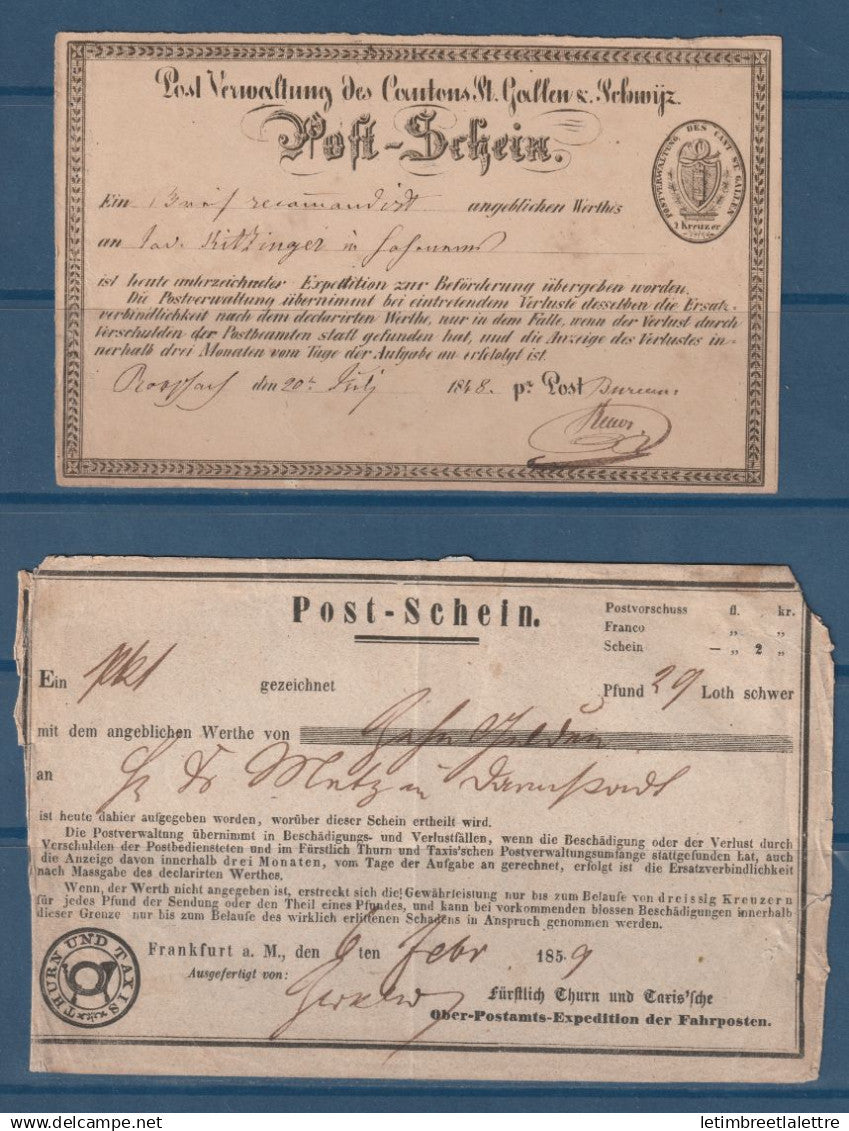 Post Verwaltung des Cantons St. Gallen & Schwyz.
Post-Schein.
POSTVERWALTUNG DES CANT ST GALLEN
1 Kreuzer
Ein Brief recomandirt angeblichen Werthes
an Kitzinger in
ist heute unterzeichneter Expedition zur Beförderung übergeben worden.
Die Postverwaltung übernimmt bei eintretendem Verluste desselben die Ersatz-
verbindlichkeit nach dem declarirten Werthe, nur in dem Falle, wenn der Verlust durch
Verschulden der Postbeamten statt gefunden hat, und die Anzeige des Verlustes in-
nerhalb drei Monaten vom Tage der Aufgabe an erfololgt ist.
Rorschach den 20n July 1848. pr Post Bureau
Post-Schein.
Postvorschuss fl. kr.
Franco „ „
Schein — „ 2 „
Ein pkt gezeichnet Pfund 29 Loth schwer
mit dem angeblichen Werthe von Zehn Gulden
an Hr Dr Metz in Darmstadt
ist heute dahier aufgegeben worden, worüber dieser Schein ertheilt wird.
Die Postverwaltung übernimmt in Beschädigungs- und Verlustfällen, wenn die Beschädigung oder der Verlust durch
Verschulden der Postbediensteten und im Fürstlich Thurn und Taxis'schen Postverwaltungsumfange stattgefunden hat, auch
die Anzeige davon innerhalb drei Monaten, vom Tage der Aufgabe an gerechnet, erfolgt ist die Ersatzverbindlichkeit
nach Massgabe des declarirten Werthes.
Wenn, der Werth nicht angegeben ist, erstreckt sich die Gewährleistung nur bis zum Belaufe von dreissig Kreuzern
für jedes Pfund der Sendung oder den Theil eines Pfundes, und kann bei vorkommenden blossen Beschädigungen innerhalb
dieser Grenze nur bis zum Belaufe des wirklich erlittenen Schadens in Anspruch genommen werden.
Frankfurt a. M., den 6ten Febr 1859
Ausgefertigt von:
THURN UND TAXIS
Fürstlich Thurn und Taxis'sche
Ober-Postamts-Expedition der Fahrposten.
letimbreetlalettre